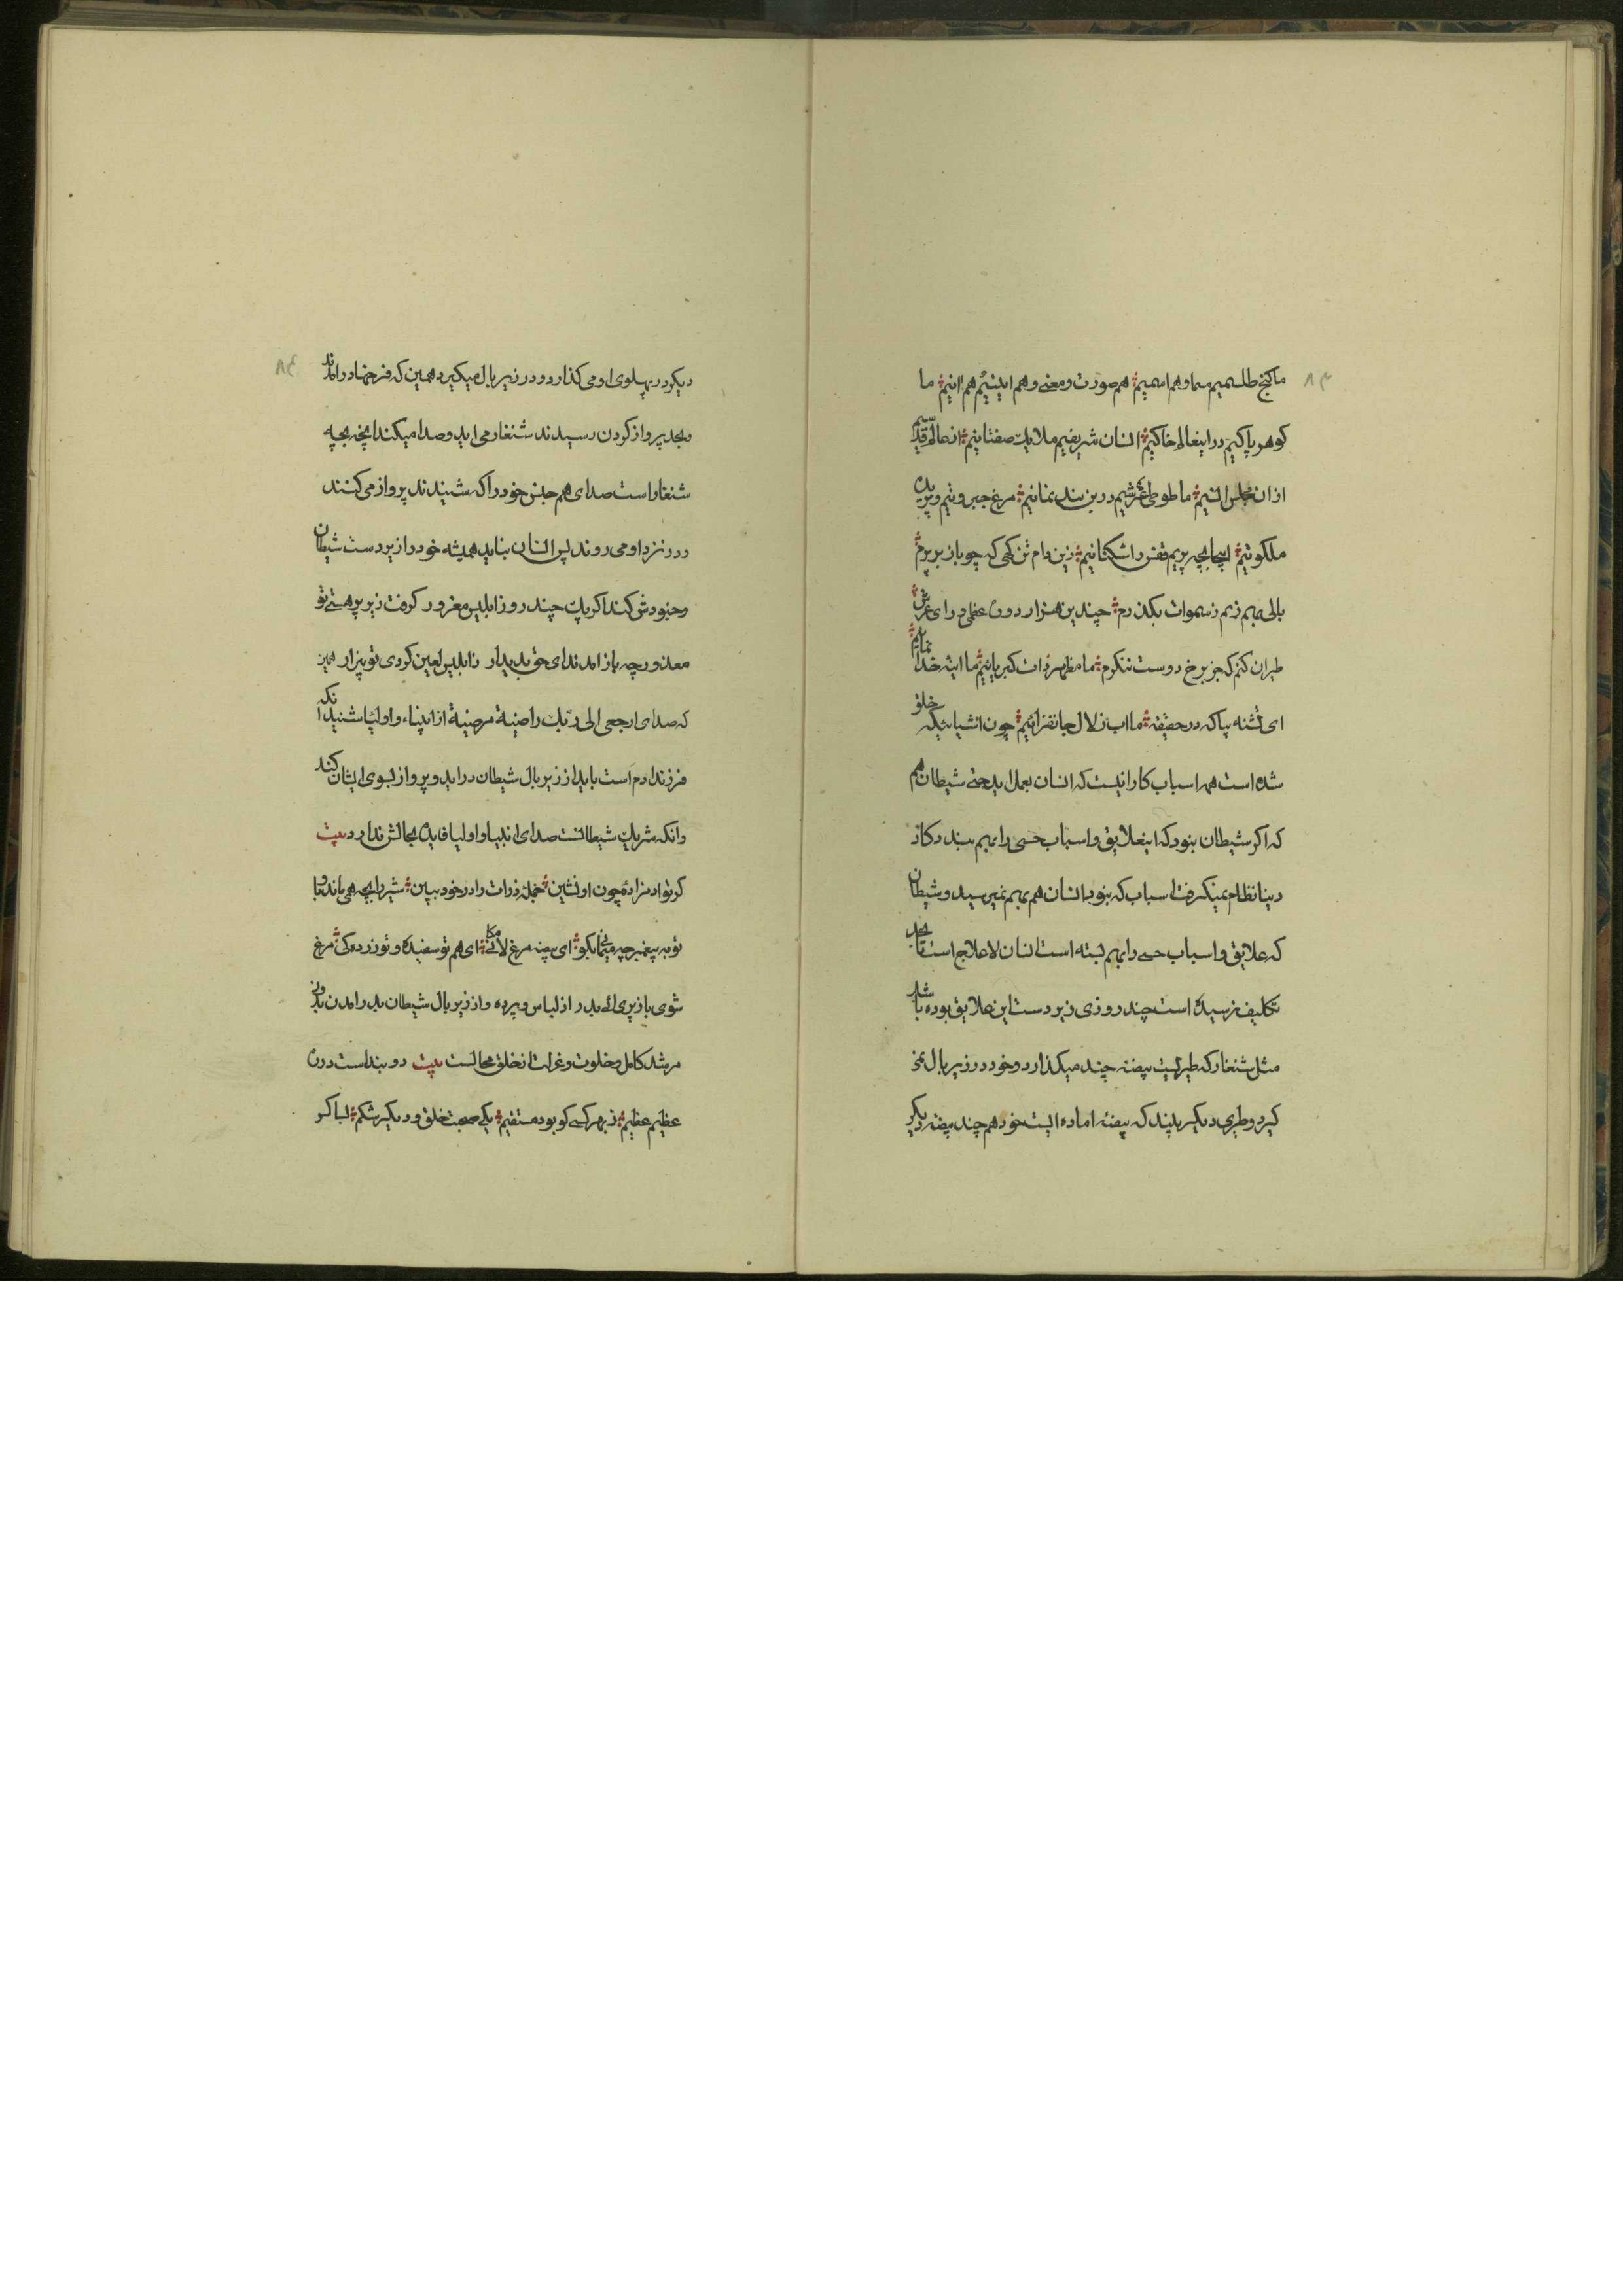 ۸۳
ما کنج طلسمیم مسما و هم اسمیم هم صورت و معنی و هم اینیم هم انیم ما
کوهر پاکیم در اینعالم خاکیم انسان شریفیم ملایک صفتانیم از عالم قدسیم
از ان مجلس انسیم ما طوطی عرشیم درین بند نمانیم مرغ جبروتیم و پریده
ملکوتیم اینجا بچه پریم قفس را شکنانیم زین دام تن کهی که چو باز بر پرم
بالی بهم زنم ز سموات بکذرم چندین هزار دون عظمی ورای عرش
طیران کنم که جز برخ دوست ننکرم ما مظهر ذات کبریائیم ما اینه خدا نمائیم
ای تشنه بیا که در حقیقه ما اب زلال جانفزائیم چون اشیائیکه خلق
شده است همه اسباب کار انیست که انسان بعمل اید حتی شیطان هم
که اکر شیطان نبود که اینعلایق و اسباب حسی را بهم ببندد کار
دنیا نظام نمیکرفت اسباب که نبود انسان هم بهم نمیرسید و شیطان
که علایق و اسباب حسی را بهم بسته است انسان لا علاج است تا بحد
تکلیف نرسیده است چند روزی زیر دست این علایق بوده باشد
مثل شنغار که طیریست بیضه چند میکذارد و خود در زیر بال نمی
کیرد و طیری دیکر ببیند که بیضه اماده ایست خود هم چند بیضه دیکر
۸۴
دیکر در پهلوی او می کذارد و در زیر بال میکیرد همین که فرخها درامدند
و بحد پرواز کردن رسیدند شنغار می اید و صدا میکند انچه بچه
شنغار است صدای هم جنس خود را که شنیدند پرواز می کنند
و در نزد او می روند پس انسان نباید همیشه خود را زیر دست شیطان
و جنودش کند اکر یک چند روز ابلیس مغرور کرفت زیر پر هستی تو
معذور چه باز امد ندای حق پدیدار ز ابلیس لعین کردی تو بیزار همین
که صدای ارجعی الی ربک راضیة مرضیة از انبیاء و اولیا شنید انکه
فرزند ادم است باید از زیر بال شیطان در اید و پرواز بسوی ایشان کند
و انکه شریک شیطانست صدای انبیا و اولیا فایده بحالش ندارد بیت
کر تو ادمزادهٔ چون او نشین جملهٔ ذرات را در خود ببین شیر را بچه همی ماند باو
تو به پیغمبر چه میمانی بکو ای بیضه مرغ لا مکانی ای هم تو سفیده و تو زرده کی مرغ
شوی باز پری ای بدر از لباس و پرده و از زیر بال شیطان بدر امدن بدون
مرشد کامل و خلوت و عزلت از خلق محالست بیت دو بند است در ره
عظیم عظیم ز بهر کسی کو بود مستقیم یکی صحبت خلق و دیکر شکم لباکر